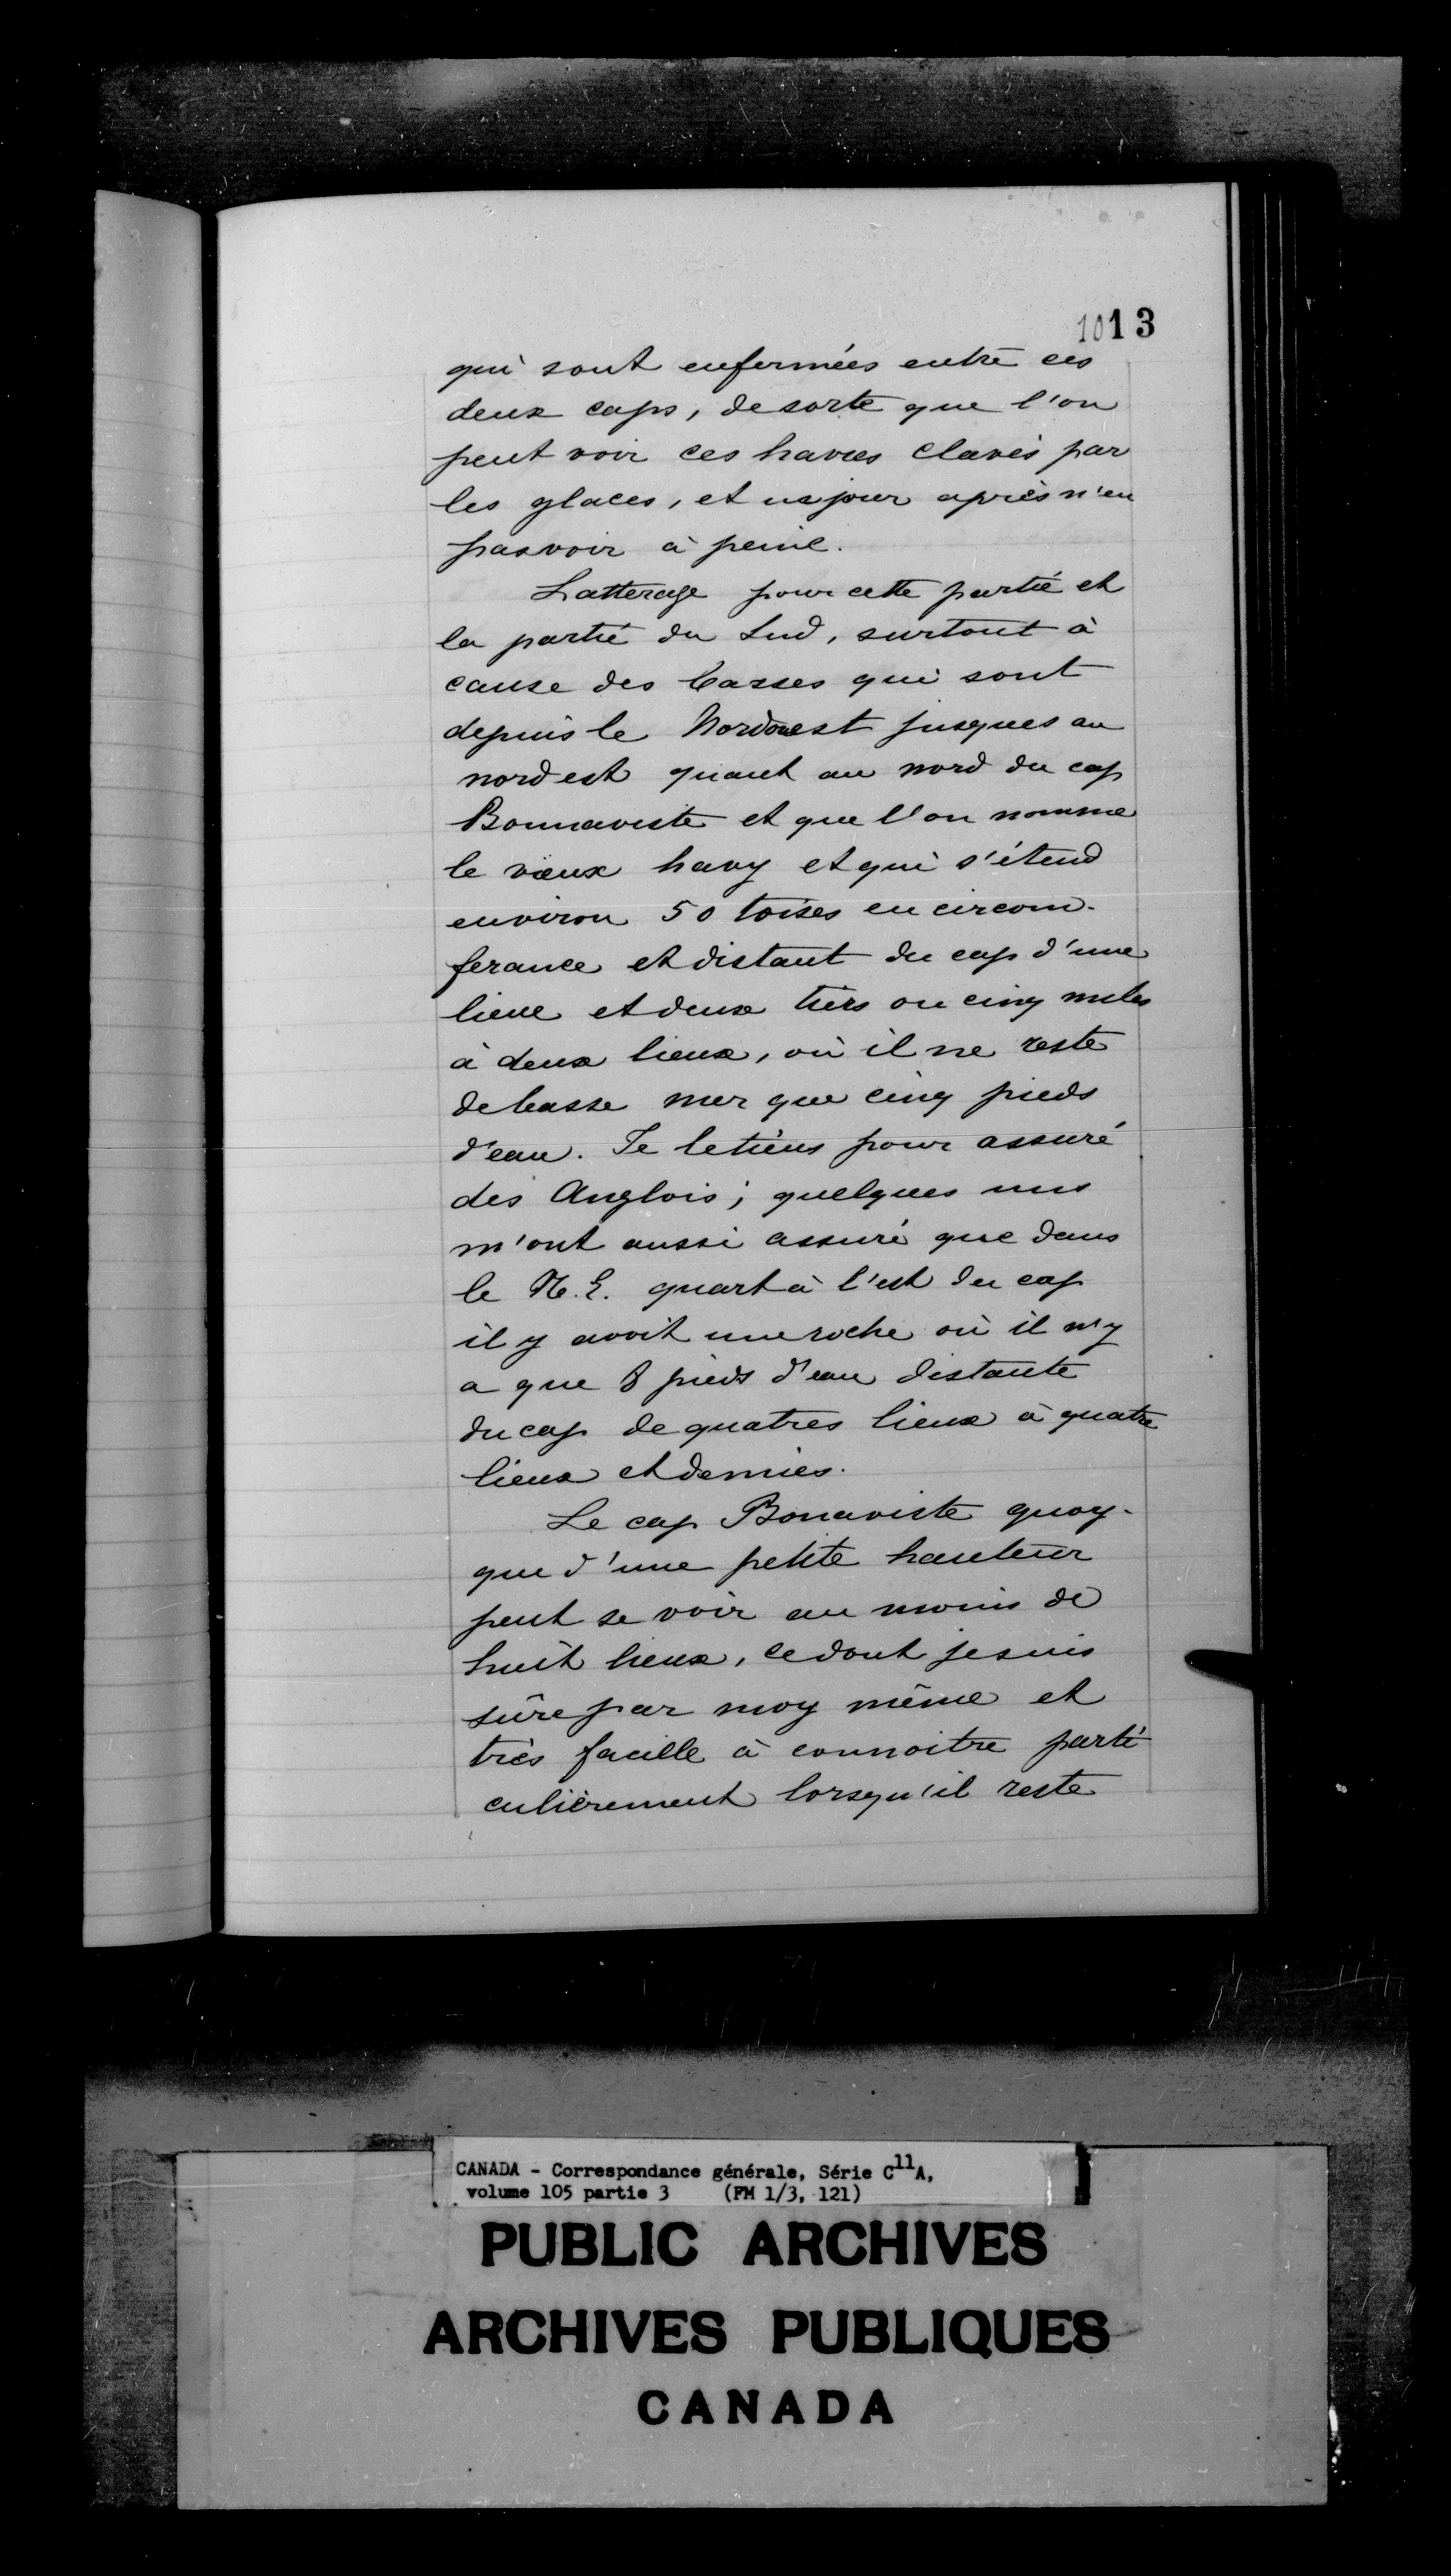 1013
qui sont enfermées entre ces
deux caps, de sorte que l'on
peut voir ces havres clavés par
les glaces, et un jour après n'en
pas voir à peine.
Latterage pour cette partie et
la partie du Sud, surtout à
cause des basses qui sont
depuis le Nordouest jusques au
nord est quant au nord du cap
Bonnaviste et que l'on nomme
le vieux havy et qui s'étend
environ 50 toises en circom-
ferance et distant du cap d'une
lieue et deux tiers ou cinq miles
à deux lieux, où il ne reste
de basse mer que cinq pieds
d'eau. Je le tiens pour assuré
des Anglois; quelques uns
m'ont aussi assuré que dans
le N.E. quart à l'est du cap
il y avoit une roche où il n'y
a que 8 pieds d'eau distante
du cap de quatres lieux à quatre
lieux et demies.
Le cap Bonaviste quoy-
que d'une petite hauteur
peut se voir au moins de
huit lieux, ce dont je suis
sûre par moy même et
très facille à connoitre parti
culièrement lorsqu'il reste
CANADA - Correspondance générale, Série C11A,
volume 105 partie 3 (FM 1/3, 121)
PUBLIC ARCHIVES
ARCHIVES PUBLIQUES
CANADA